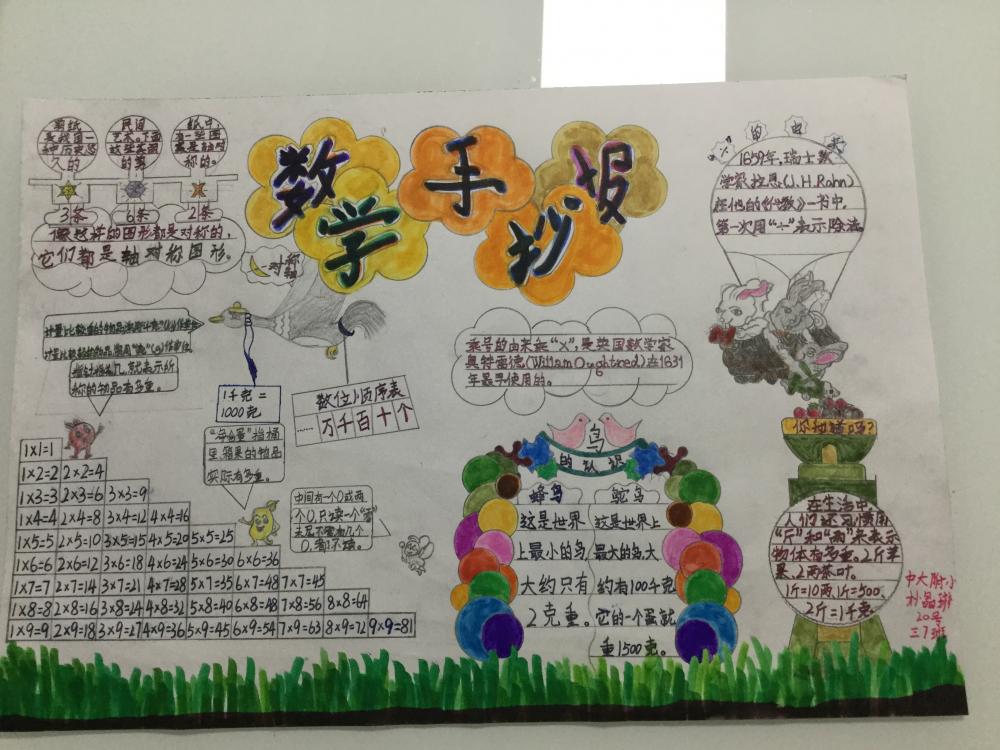 剪纸
是我国一
种历史悠
久的
民间
艺术。下面
这些美丽
的剪
纸中,
有一些图
案是轴对
称的。
3条 6条 2条
像这样的图形都是对称的,
它们都是轴对称图形。
对称
轴
数学手抄报
指针指着几,就表示所
称的物品有多重。
1千克=
1000克
数位顺序表
……万千百十个
"每个重"指桶
里、箱里的物品
实际有多重。
中间有一个0或两
个0,只读一个"零"
末尾不管有几个
0,都不读。
1×1=1
1×2=2 2×2=4
1×3=3 2×3=6 3×3=9
1×4=4 2×4=8 3×4=12 4×4=16
1×5=5 2×5=10 3×5=15 4×5=20 5×5=25
1×6=6 2×6=12 3×6=18 4×6=24 5×6=30 6×6=36
1×7=7 2×7=14 3×7=21 4×7=28 5×7=35 6×7=48 7×7=45
1×8=8 2×8=16 3×8=24 4×8=32 5×8=40 6×8=48 7×8=56 8×8=64
1×9=9 2×9=18 3×9=27 4×9=36 5×9=45 6×9=54 7×9=63 8×9=72 9×9=81
乘号的由来乘"×",是英国数学家
奥特雷德(William Oughtred)在1631
年最早使用的。
鸟
的认识
蜂鸟
这是世界
上最小的鸟,
大约只有
2克重。
鸵鸟
这是世界上
最大的鸟,大
约有100千克
它的一个蛋就
重1500克。
÷的由来
1659年,瑞士数
学家拉恩(J.H.Rahn)
在他的《代数》一书中,
第一次用"÷"表示除法。
你知道吗?
在生活中,
人们还习惯用
"斤"和"两"来表示
物体有多重。2斤苹
果、2两茶叶。
1斤=10两,1斤=500,
2斤=1千克。
中大附小
20号
三7班